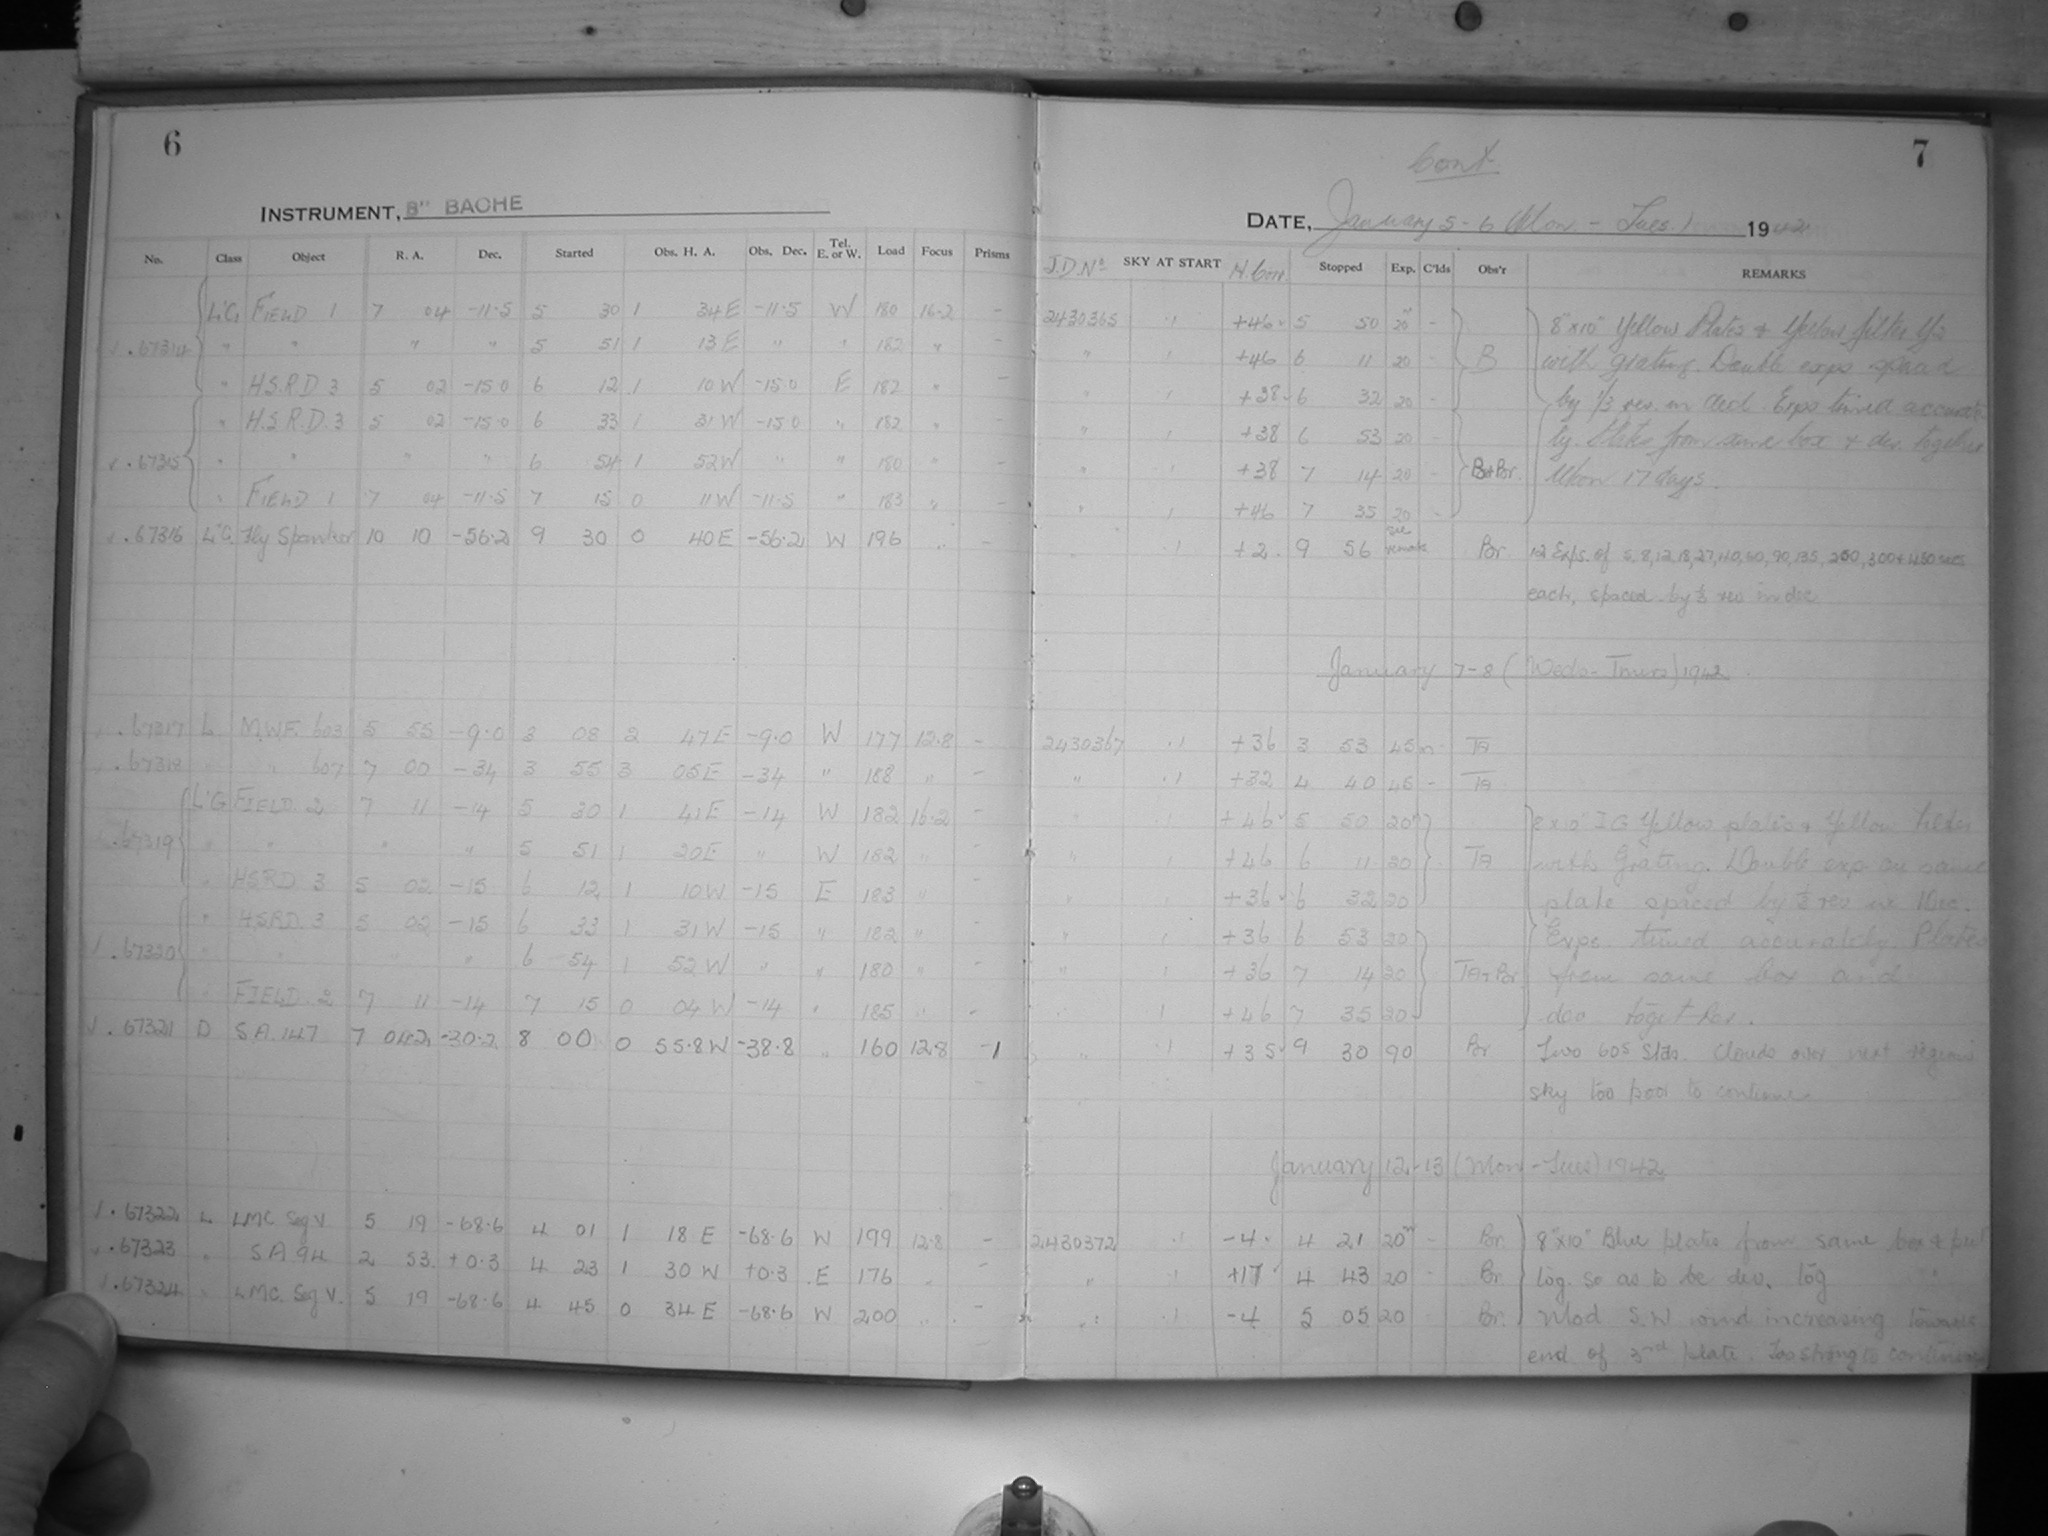 6
INSTRUMENT, 8" BACHE
No. Class Object R. A. Dec. Started Obs. H. A. Obs. Dec. Tel. E. or W. Load Focus Prisms
L'G. FIELD 1 7 04 -11.5 5 30 1 34 E -11.5 W 180 16.2 -
.67314 " " " " 5 51 1 13 E " " 182 " -
" H.S.R.D 3 5 02 -15.0 6 12 1 10 W -15.0 E 182 " -
" H.S.R.D. 3 5 02 -15.0 6 33 1 31 W -15.0 " 182 " -
.67315 " " " " 6 54 1 52 W " " 180 " -
" FIELD 1 7 04 -11.5 7 15 0 11 W -11.5 " 183 " -
.67316 L'G. 10 10 -56.2 9 30 0 40 E -56.2 W 196 "
.67317 L M.W.F. 603 5 55 -9.0 3 08 2 47 E -9.0 W 177 12.8 -
.67318 " " 607 7 00 -34 3 55 3 05 E -34 " 188 " -
L'G FIELD 2 7 11 -14 5 30 1 41 E -14 W 182 16.2 -
.67319 " " " " 5 51 1 20 E " W 182 " -
" HSRD 3 5 02 -15 6 12 1 10 W -15 E 183 " -
" HSRD. 3 5 02 -15 6 33 1 31 W -15 " 182 " -
.67320 " " " " 6 54 1 52 W " " 180 " -
" FIELD 2 7 11 -14 7 15 0 04 W -14 " 185 " -
.67321 D S.A. 147 7 -30.2 8 00 0 55.8 W -38.8 " 160 12.8 -1
.67322 L LMC. Seq V 5 19 -68.6 4 01 1 18 E -68.6 W 199 12.8 -
.67323 " S.A. 94 2 53 +0.3 4 23 1 30 W +0.3 E 176 " -
.67324 " LMC. Seq V. 5 19 -68.6 4 45 0 34 E -68.6 W 200 " -
7
Cont.
DATE, January 5-6 (Mon. - Tues.) 1942
J.D. No SKY AT START H. Corr Stopped Exp. C'lds Obs'r REMARKS
2430365 .1 +46 5 50 20m - 8"x10" Yellow Plates & Yellow filter
" " +46 6 11 20 - B with grating. Double exps spaced
" " +38 6 32 20 - by 1/3 rev. in decl. Exps timed accurate-
" " +38 6 53 20 - ly. Plates from same box & dev. together
" .1 +38 7 14 20 - B+Br. Moon 17 days.
" " +46 7 35 20 -
.1 +2 9 56 see remarks Br. 12 Exps. of 5, 8, 12, 18, 27, 40, 60, 90, 135, 200, 300 + 450 secs
each, spaced by 1/3 rev in dec
January 7-8 (Weds-Thurs) 1942
2430367 .1 +36 3 53 45m -
" .1 +32 4 40 45 -
" .1 +46 5 50 20m 8x10" I G Yellow plates & Yellow filter
" " +46 6 11 20 with Grating. Double exp on same
" " +36 6 32 20 plate spaced by 1/3 rev in Dec.
" " +36 6 53 20 Exps. timed accurately. Plates
" " +36 7 14 20 from same box and
" " +46 7 35 20 dev together.
" .1 +35 9 30 90 Br Two 60s Stds. Clouds over next regions
sky too poor to continue.
January 12-13 (Mon - Tues) 1942
2430372 .1 -4 4 21 20m - Br. 8"x10" Blue plates from same box & put
" .1 +17 4 43 20 - Br. tog. so as to be dev. tog
" .1 -4 5 05 20 Br. Mod S.W wind increasing towards
end of 3rd plate. Too strong to continue